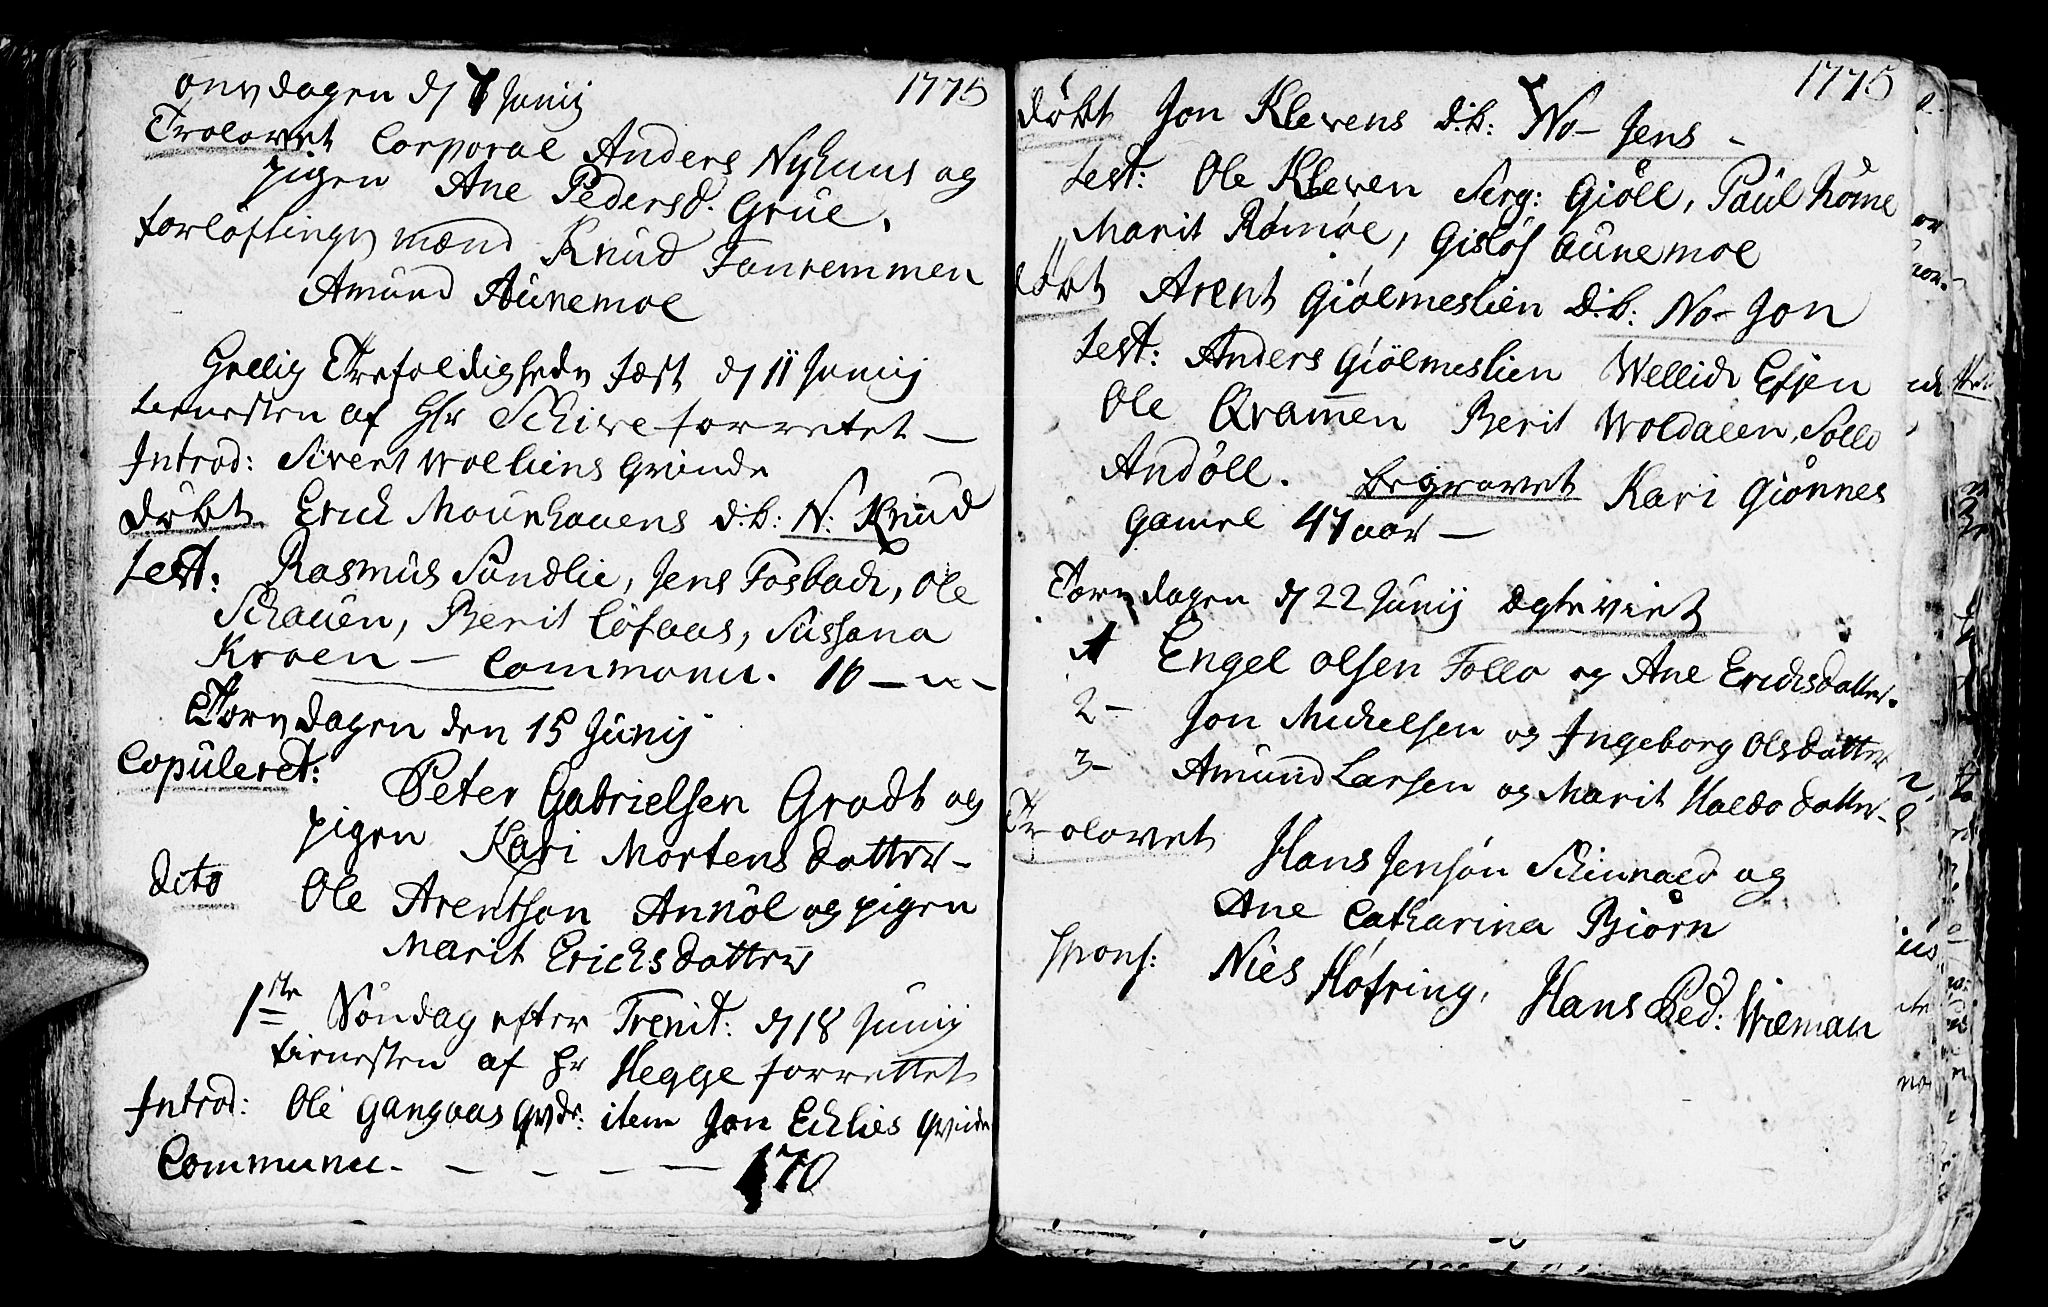 1775
onsdagen d 7 Junij
Trolovet Corporal Anders Nyhuus og
pigen Ane Pedersd. Grüe.
forlöftings mænd Knud Fanremmen
Amünd Aünemoe
Hellig Trefoldigheds fæst d 11 Junij
tienesten af Hr Schive forrettet —
Introd: Sivert Wolliens Qvinde
döbt Erich Mourhouens d:b: N: Knüd
test: Rasmüs Sündlie, Jens Fosbach, Ole
Schaüen, Berit Löfaas, Süssana
Kroen — Communic. 16 —
Torsdagen den 15 Jünij
Copüleret: Peter Gabrielsen Grodt og
pigen Kari Mortens datter —
dito Ole Arentson Annöl og pigen
Marit Erichsdatter
1ste Söndag efter Trenit: d 18 Junij
tienesten af Hr Hegge forrettet
Introd: Ole Gangaas Qvde: item Jon Echlies Qvinde
Communic. — — — — 170
1775
döbt Jon Klevens d:b: No — Jens —
test: Ole Kleven Serg: Giöll, Paül Röme
Marit Römöe, Gislöf Aünemoe
döbt Arent Giölmeslien d:b: No — Jon
test: Anders Giölmeslien Wellich Essen
Ole Qvammen Berit Woldalen, Solle
Andöll. begravet Kari Giönnes
gamel 47 aar —
Torsdagen d 22 Junij Egteviet
1 Engel Olsen Follo og Ane Erichsdatter.
2 — Jon Michelsen og Ingeborg Olsdatter
3 — Amünd Larsen og Marit Haldo datter —
Trolovet Hans Jensön Schinnald og
Ane Catharina Biörn
spons: Niels Höfring, Hans Ped: Wieman